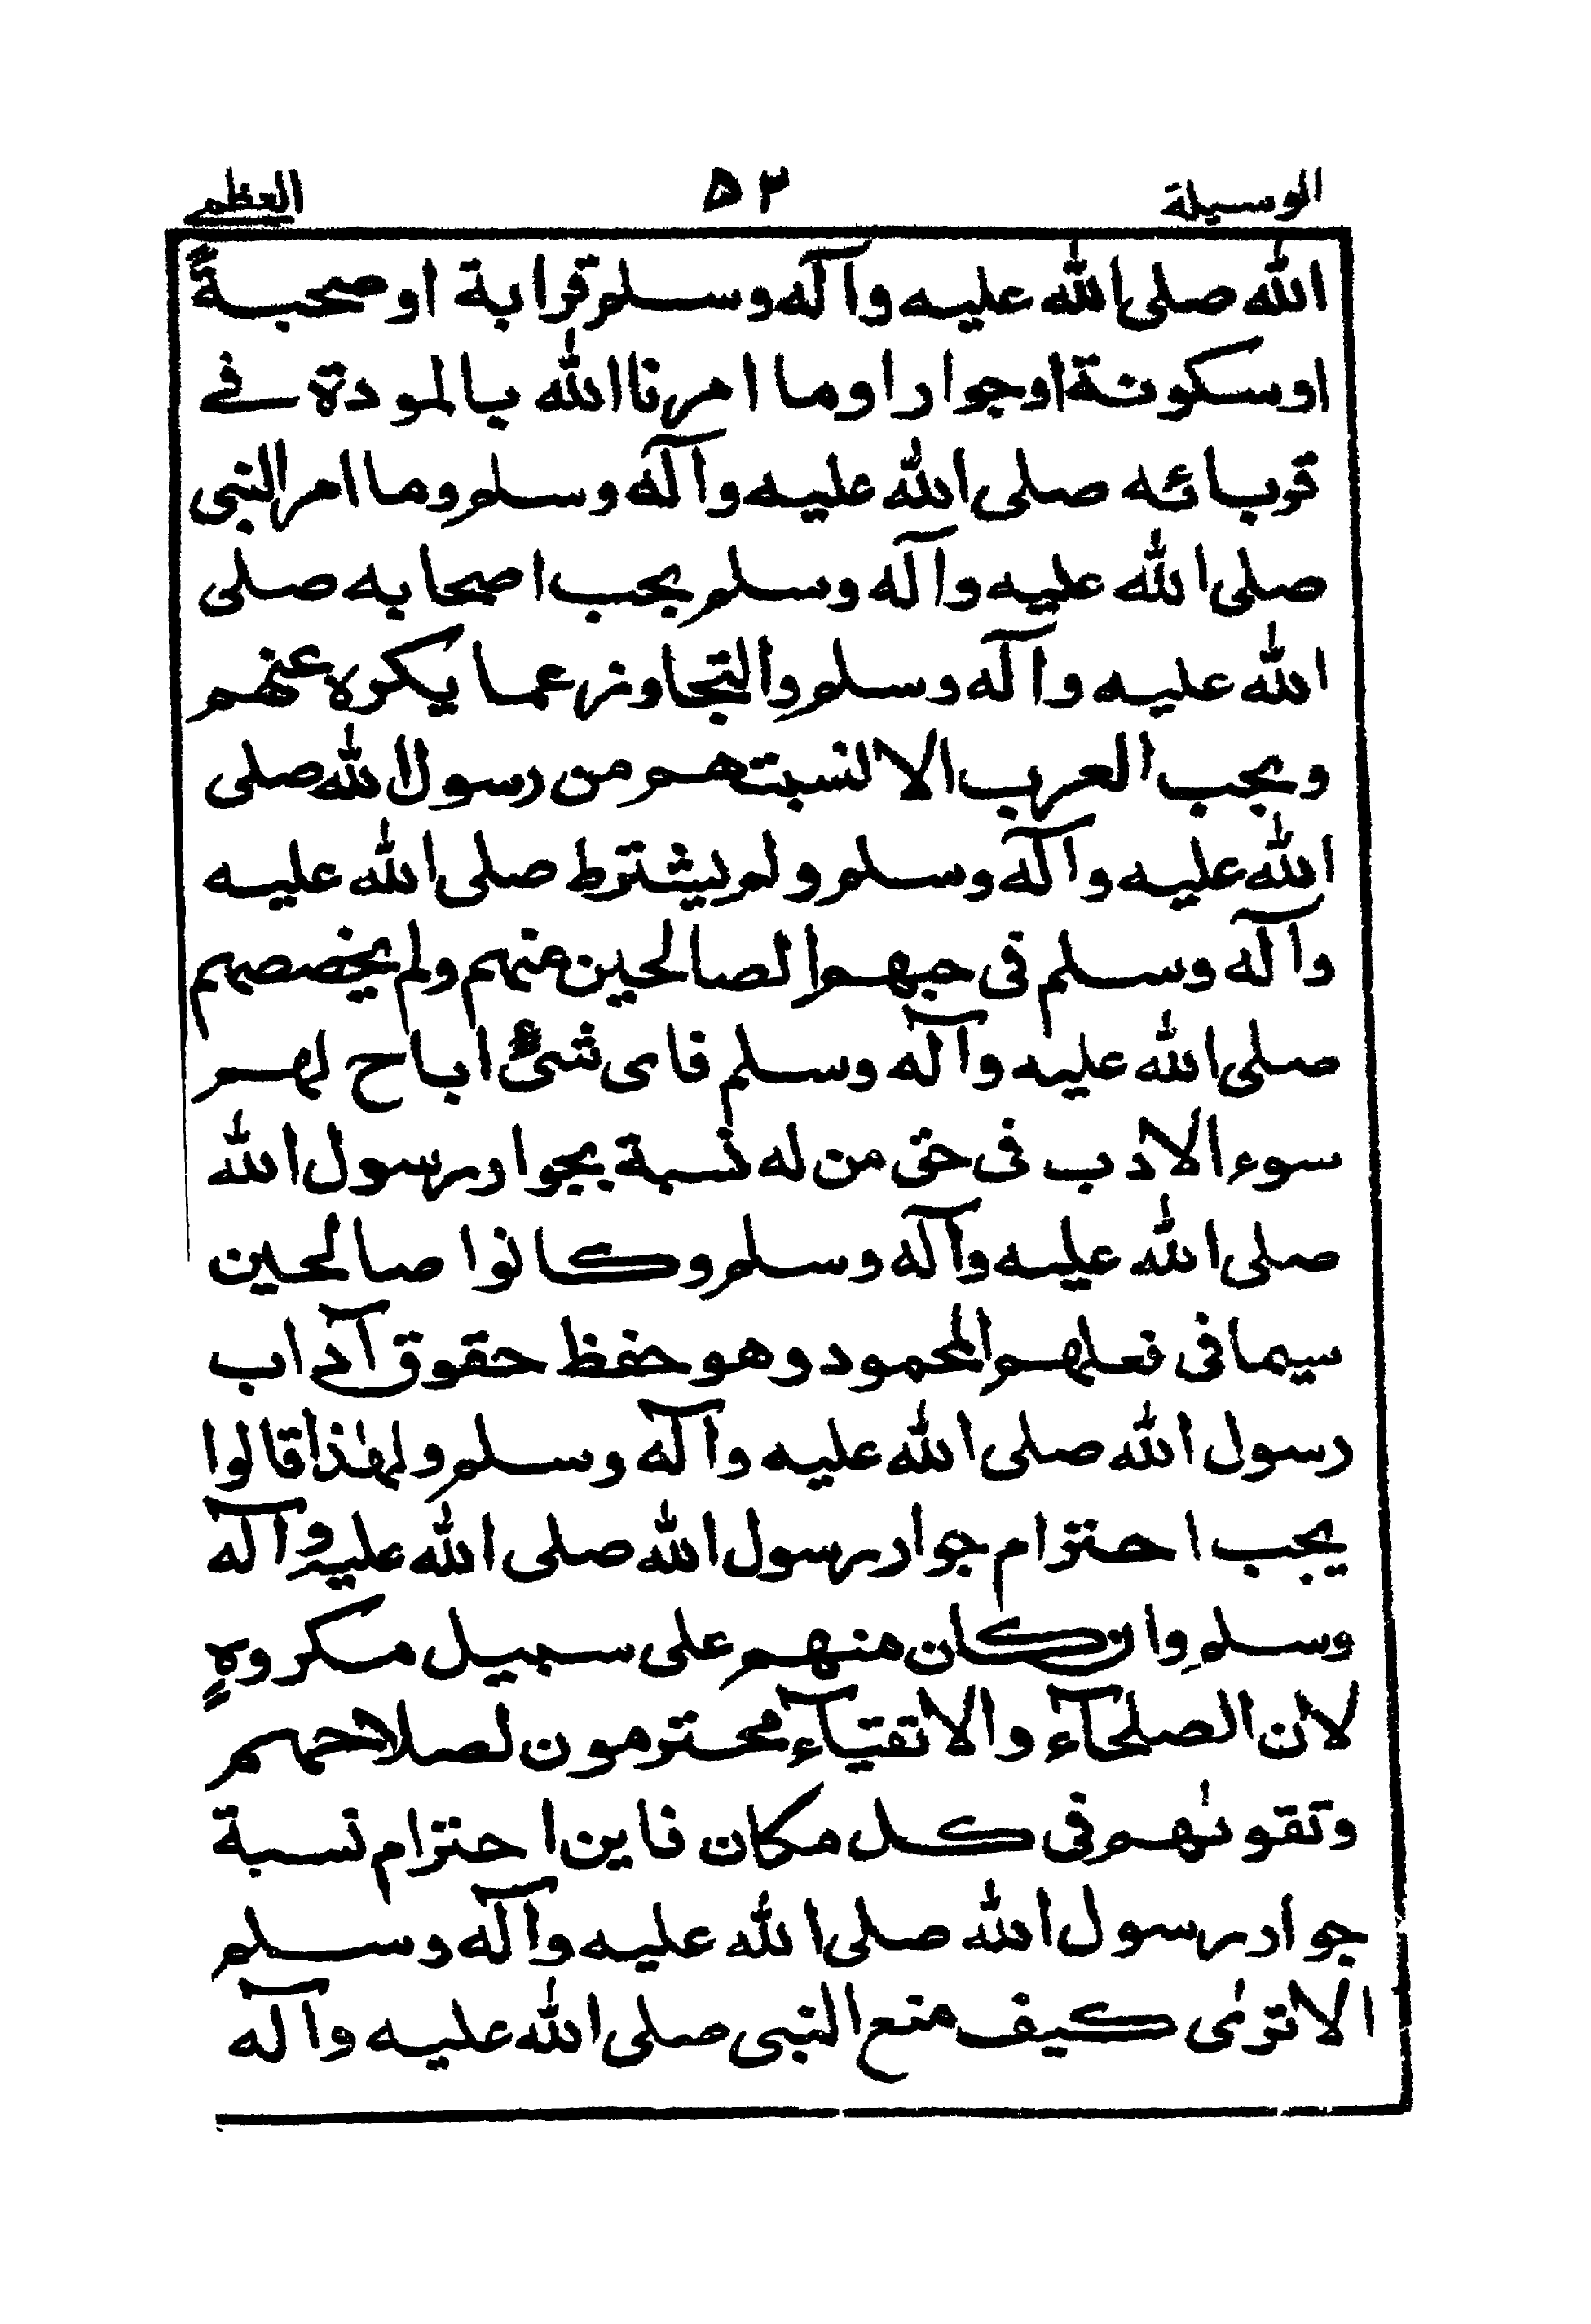 الوسيلة ٥٣ العظمى
الله صلى الله عليه وآله وسلم قرابة او صحبةً
او سكونة او جوارا وما امرنا الله بالمودة فى
قربائه صلى الله عليه وآله وسلم وما امر النبى
صلى الله عليه وآله وسلم بحب اصحابه صلى
الله عليه وآله وسلم والتجاوز عما يكره عنهم
وبحب العرب الا لنسبتهم من رسول الله صلى
الله عليه وآله وسلم ولم يشترط صلى الله عليه
وآله وسلم فى حبهم الصالحين منهم ولم يخصصهم
صلى الله عليه وآله وسلم فاى شىء اباح لهم
سوء الادب فى حق من له نسبة بجوار رسول الله
صلى الله عليه وآله وسلم وكانوا صالحين
سيما فى فعلهم المحمود وهو حفظ حقوق آداب
رسول الله صلى الله عليه وآله وسلم ولهٰذا قالوا
يجب احترام جوار رسول الله صلى الله عليه وآله
وسلم وان كان منهم على سبيل مكروهٍ
لان الصلحآء والاتقيآء محترمون لصلاحهم
وتقوٰىهم فى كل مكان فاين احترام نسبة
جوار رسول الله صلى الله عليه وآله وسلم
الا ترىٰ كيف منع النبى صلى الله عليه وآله